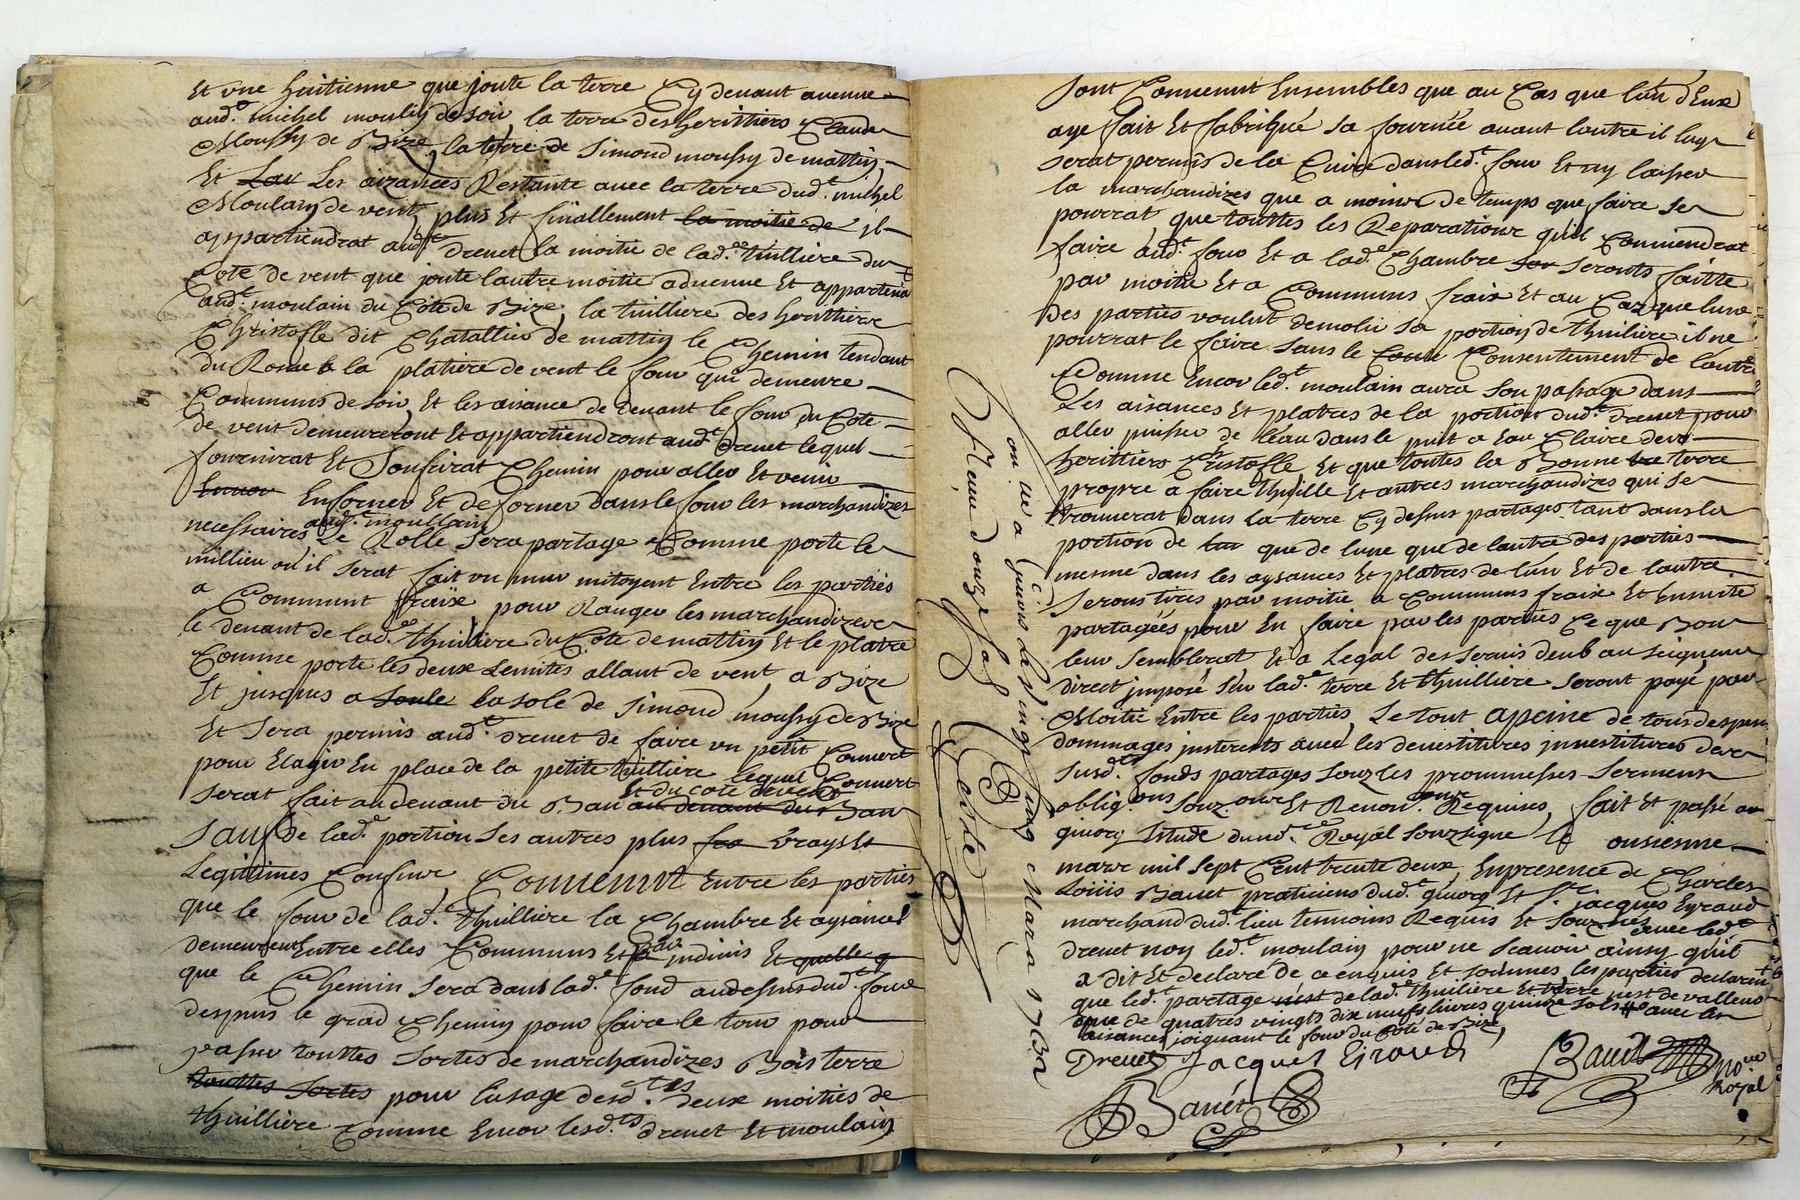 Et vne huitiesme que joute la terre Cy deuant auenue
aud.t michel moulin de soir, la terre des herittiers Claude
Moussy de Bize, la terre de Simond moussy de mattin,
Et Les aizances Restante auec la terre dud.t michel
Moulain de vent, plus Et finallement la moitie de il
appartiendrat aud.t dreuet la moitie de lad.e tuilliere du
Cote de vent que joute lautre moitie aduenue Et appartenu
aud.t moulain du Côte de Bize, la tuilliere des herittiers
Christofle dit Chatallier de mattin le Chemin tendant
du a la platiere de vent le four qui demeure
Communs de soir, Et les aisance de deuant le four du Cote
de vent demeureront Et appartiendront aud.t dreuet lequel
fournirat Et Soufrirat Chemin pour aller Et venir
Encor Enforner Et deforner dans le four les marchandizes
aud.t moullain
necessaires Le Rolle Sera partage Comme porte le
millieu ou il Serat fait vn mur mitoyent Entre les parties
a Commun fraix pour Ranger les marchandizes
le deuant de lad.e thuiliere du Cote de mattin Et le platre
Comme porte les deux Limites allant de vent a Bize
Et jusques a la sole de Simond moussy de Bize
Et Sera permis aud.t dreuet de faire vn petit Couuert
pour En place de la petite tuilliere lequel Couuert
Et du cote de vent
Serat fait au deuant du au deuant du
Sauf de lad.e portion Ses autres plus vrays Et
Legitimes Confins, Conuenut Entre les parties
que le four de lad.e thuilliere la Chambre Et aysances
demeurent Entre elles Communs Et par indiuis Et quelle
que le Chemin Sera dans lad.e fond au dessus dud.t four
despuis le grad Chemin pour faire le tour pour
passer touttes Sortes de marchandizes Bois terre
touttes Sortes pour l'usage desd.tes deux moities de
thuilliere Comme Encor lesd.ts dreuet Et moulain
Sont Conuenut Ensembles que au Cas que lun d'Eux
aye fait Et fabriqué sa fournée auant lautre il luy
serat permis de la Cuire dans led.t four Et ny laisser
la marchandizes que a moins de temps que faire se
pourrat que touttes les Reparations quil Conuiendrat
faire aud.t four Et a lad.e Chambre seronts faitte
par moitie Et a Communs fraix Et au Cas que lune
des parties voulut demolir sa portion de thuiliere il ne
pourrat le faire sans le Consentement de lautre
Comme Encor led.t moulain aura son passage dans
Les aisances Et platres de la portion dud.t dreuet pour
aller puiser de l'eau dans le puit a Eau Claire des
herittiers Christofle Et que toutes la Bonne terre
propre a faire thuille Et autres marchandizes qui se
trouuerat dans la terre Cy dessus partages tant dans la
portion de que de lune que de lautre des parties
mesme dans les aysances Et platres de l'un Et de lautre
Serons tires par moitie a Communs fraix Et Ensuite
partagées pour En faire par les parties Ce que Bon
leur Semblerat Et a Legal des Seruis deub au seigneur
direct imposé Sur lad.e terre Et thuilliere Seront payé par
Moitié Entre les parties, Le tout apeine de tous despens
dommages jnterests auec les deuestitures jnuestitures des
Susd.ts fonds partages Souz les prommesses Serment
oblig.ons Souz.ons Et Renon.ons Requises, fait Et passé au
giuors Etude dud.t No.re Royal Souzsigne le onsieme
mars mil sept Cent trente deux, En presence de Charles
Louis Bauet praticiens dud.t giuors Et S.r jacques Eyraud
marchand dud.t lieu temoins Requis Et Souz.nes auec led.t
dreuet non led.t moulain pour ne scauoir ainsy quil
a dit Et declaré de ce enquis Et sommes, les parties declarent
que led.t partage de lad.e thuiliere Et terre nest de valleur
que de quatres vingts dix neufs liures quinze sols auec les
aisances joignant le four du Coté de Bize,
Dreuet Jacques Eiraud
Bauet
Bauet no.re
Royal
a Giuors le vingt cinq Mars 1732
Receu douze sols